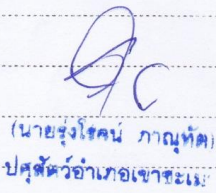 (นายรุ่งโรจน์ ภาณุทัต)
ปศุสัตว์อำเภอเขาชะเมา